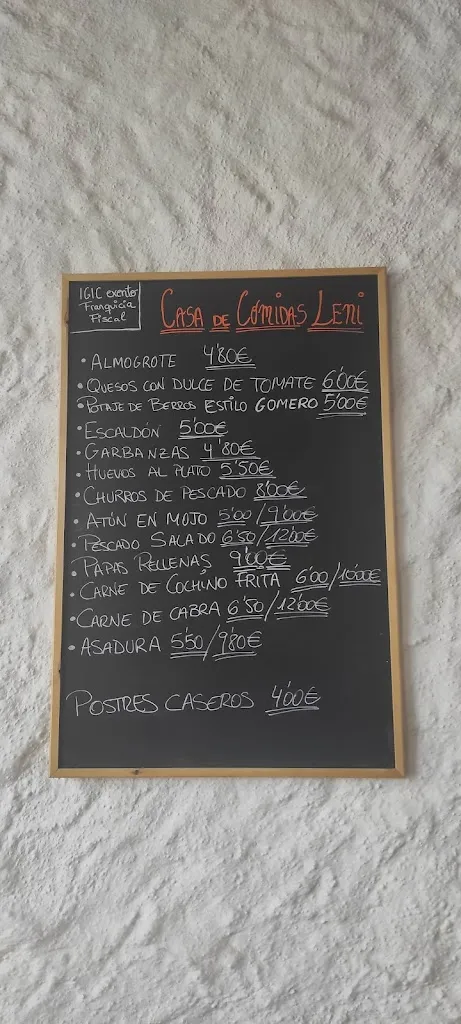 IGIC exento
Franquicia
Fiscal
CASA DE COMIDAS LENI
• ALMOGROTE 4'80€
• QUESOS CON DULCE DE TOMATE 6'00€
• POTAJE DE BERROS ESTILO GOMERO 5'00€
• ESCALDÓN 5'00€
• GARBANZAS 4'80€
• HUEVOS AL PLATO 5'50€
• CHURROS DE PESCADO 8'00€
• ATÚN EN MOJO 5'00/9'00€
• PESCADO SALADO 6'50/12'00€
• PAPAS RELLENAS 9'00€
• CARNE DE COCHINO FRITA 6'00/10'00€
• CARNE DE CABRA 6'50/12'00€
• ASADURA 5'50/9'80€
POSTRES CASEROS 4'00€